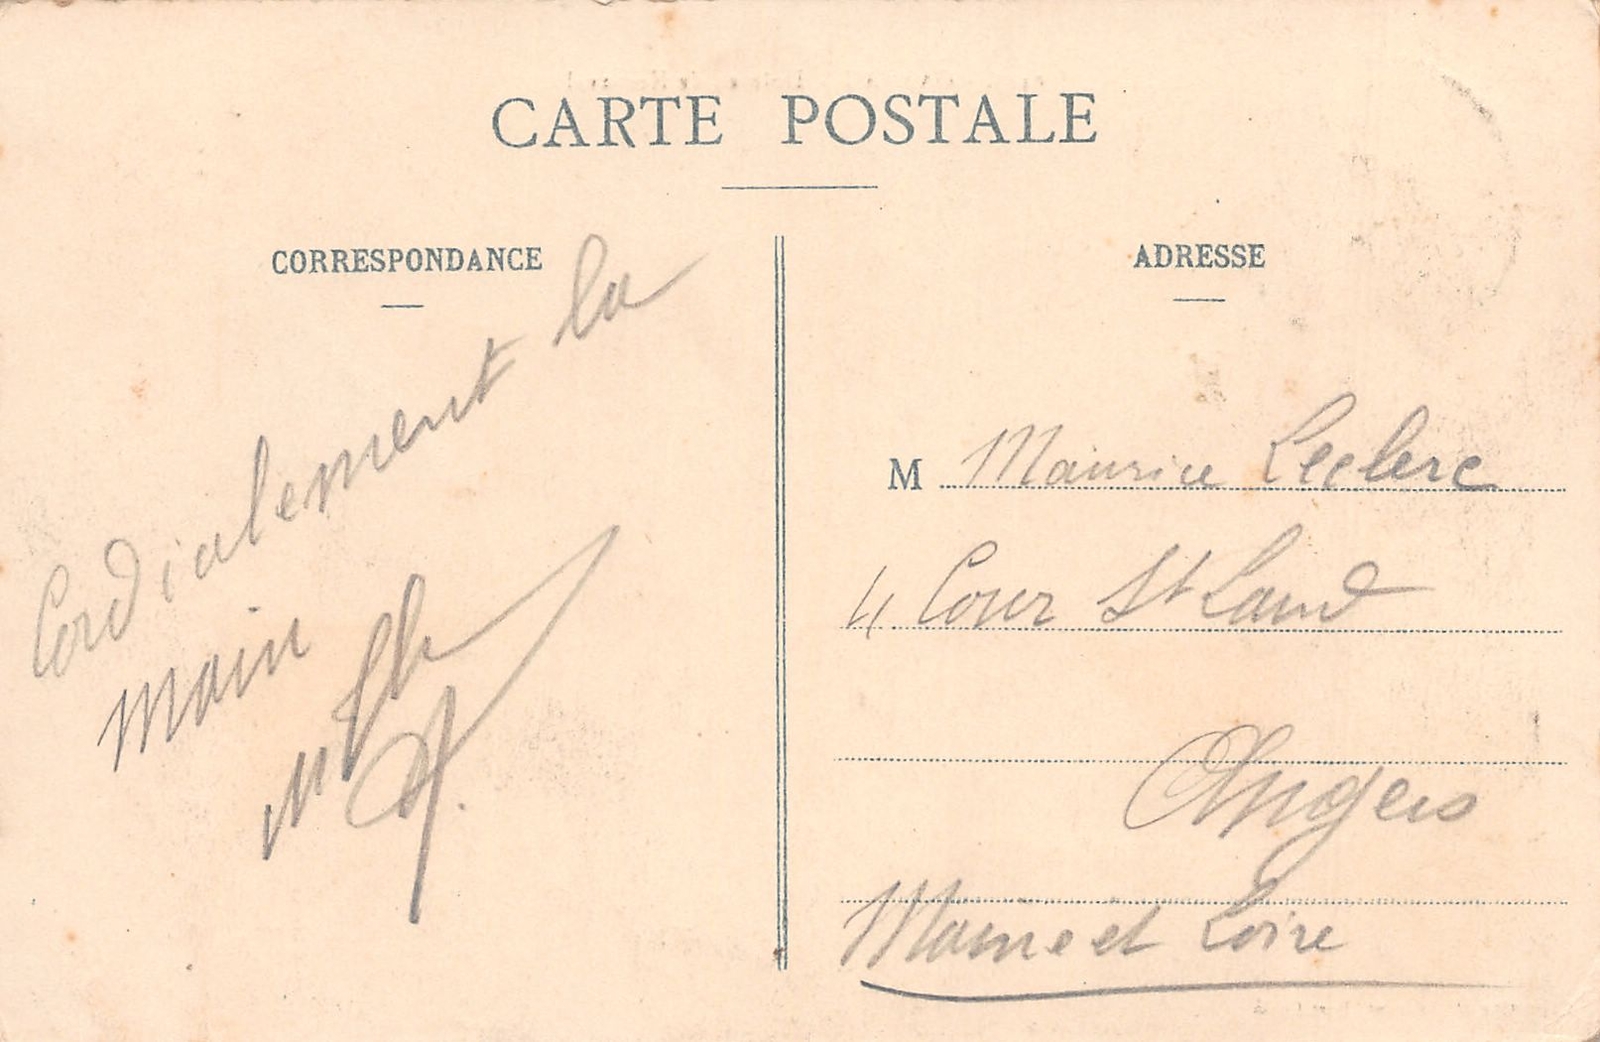 CARTE POSTALE
CORRESPONDANCE
Cordialement la
main
ADRESSE
M Maurice Leclerc
4 Cour St Laud
Angers
Maine et Loire